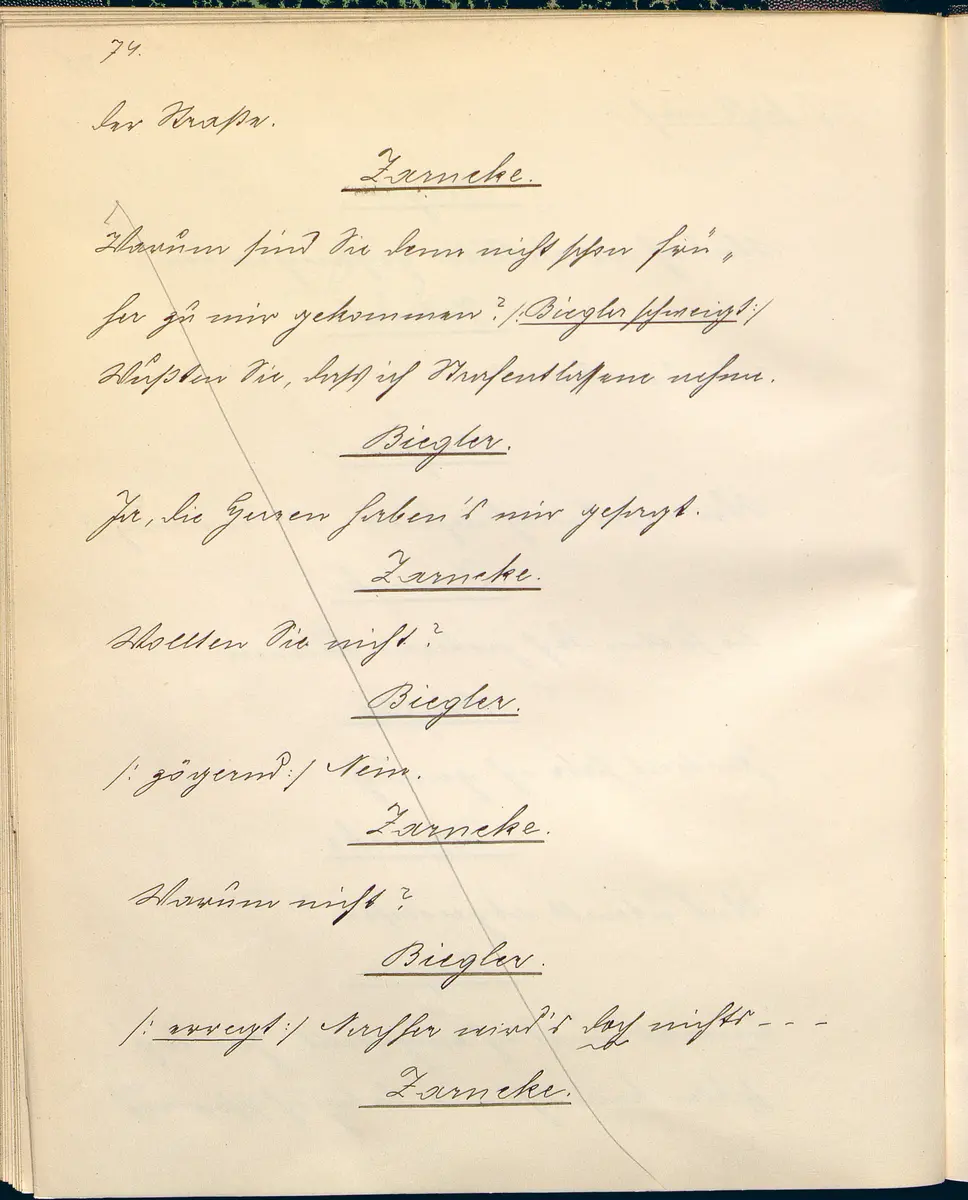 74.
der Straße.
Zarncke.
Warum sind Sie denn nicht schon frü„
her zu mir gekommen? /: Biegler schweigt :/
Wußten Sie, daß ich Strafentlassene nehme.
Biegler.
Ja, die Herren haben's mir gesagt.
Zarncke.
Wollten Sie nicht?
Biegler.
/: zögernd :/ Nein.
Zarncke.
Warum nicht?
Biegler.
/: erregt :/ Nachher wird's doch nichts - - -
Zarncke.